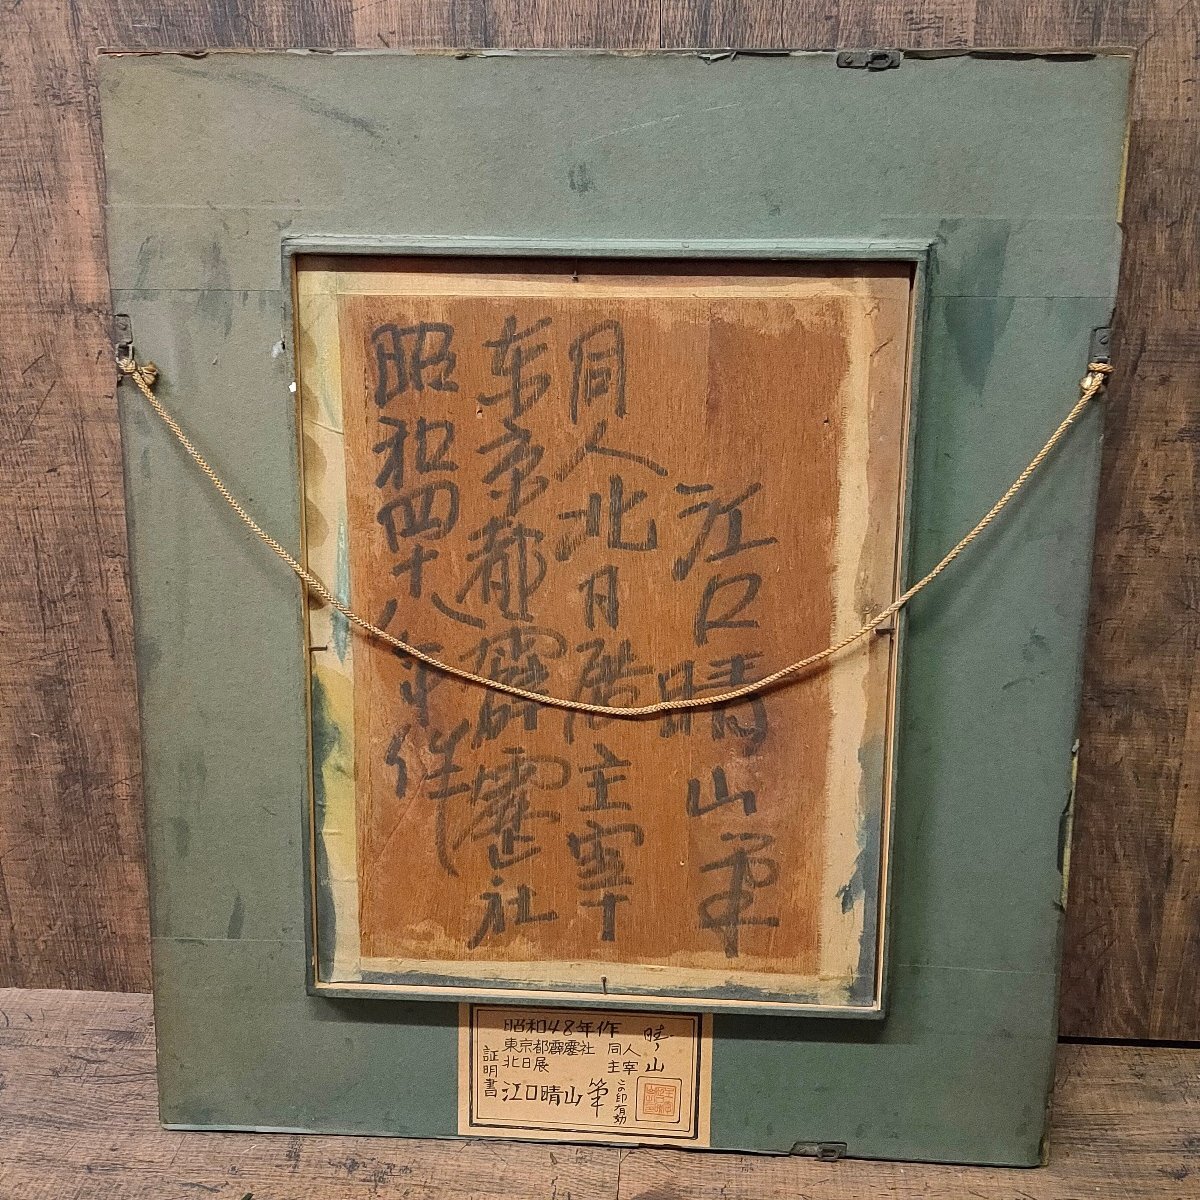 江口晴山筆
同人北日展主宰
東京都霹靂社
昭和四十八年作
昭和48年作
東京都霹靂社 同人
北日展 主宰
晴山
証明書
江口晴山 筆
この印有効